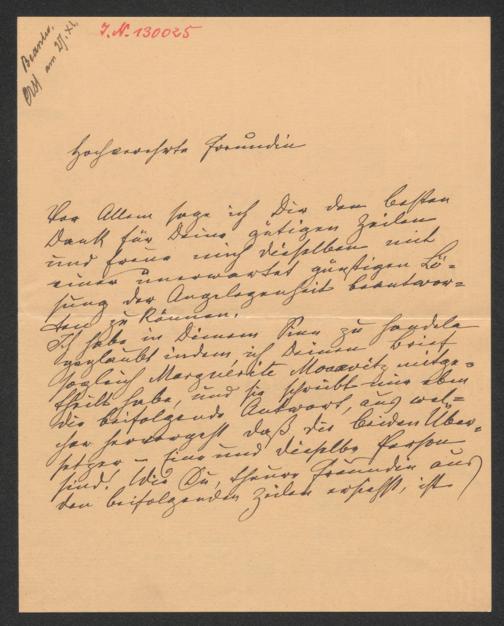 Beantw.
erst am 27. XI.
I. N. 130025
Hochverehrte Freundin
Vor Allem sage ich Dir den besten
Dank für Deine gütigen Zeilen
und freue mich dieselben mit
einer unerwartet günstigen Lö-
sung der Angelegenheit beantwor-
ten zu können.
Ich habe in Deinem Sinn zu handeln
geglaubt indem, ich Deinen Brief
sogleich Marguerite mitge-
theilt habe, und sie schreibt mir eben
die beifolgende Antwort, aus wel-
cher hervorgeht daß die beiden Über-
setzer – Eine und dieselbe Person
sind! Wie Du, theure Freundin aus
den beifolgenden Zeilen ersiehst, ist